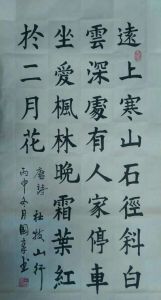 遠上寒山石徑斜白
雲深處有人家停車
坐愛楓林晚霜葉紅
於二月花
唐詩 杜牧山行
丙申冬月